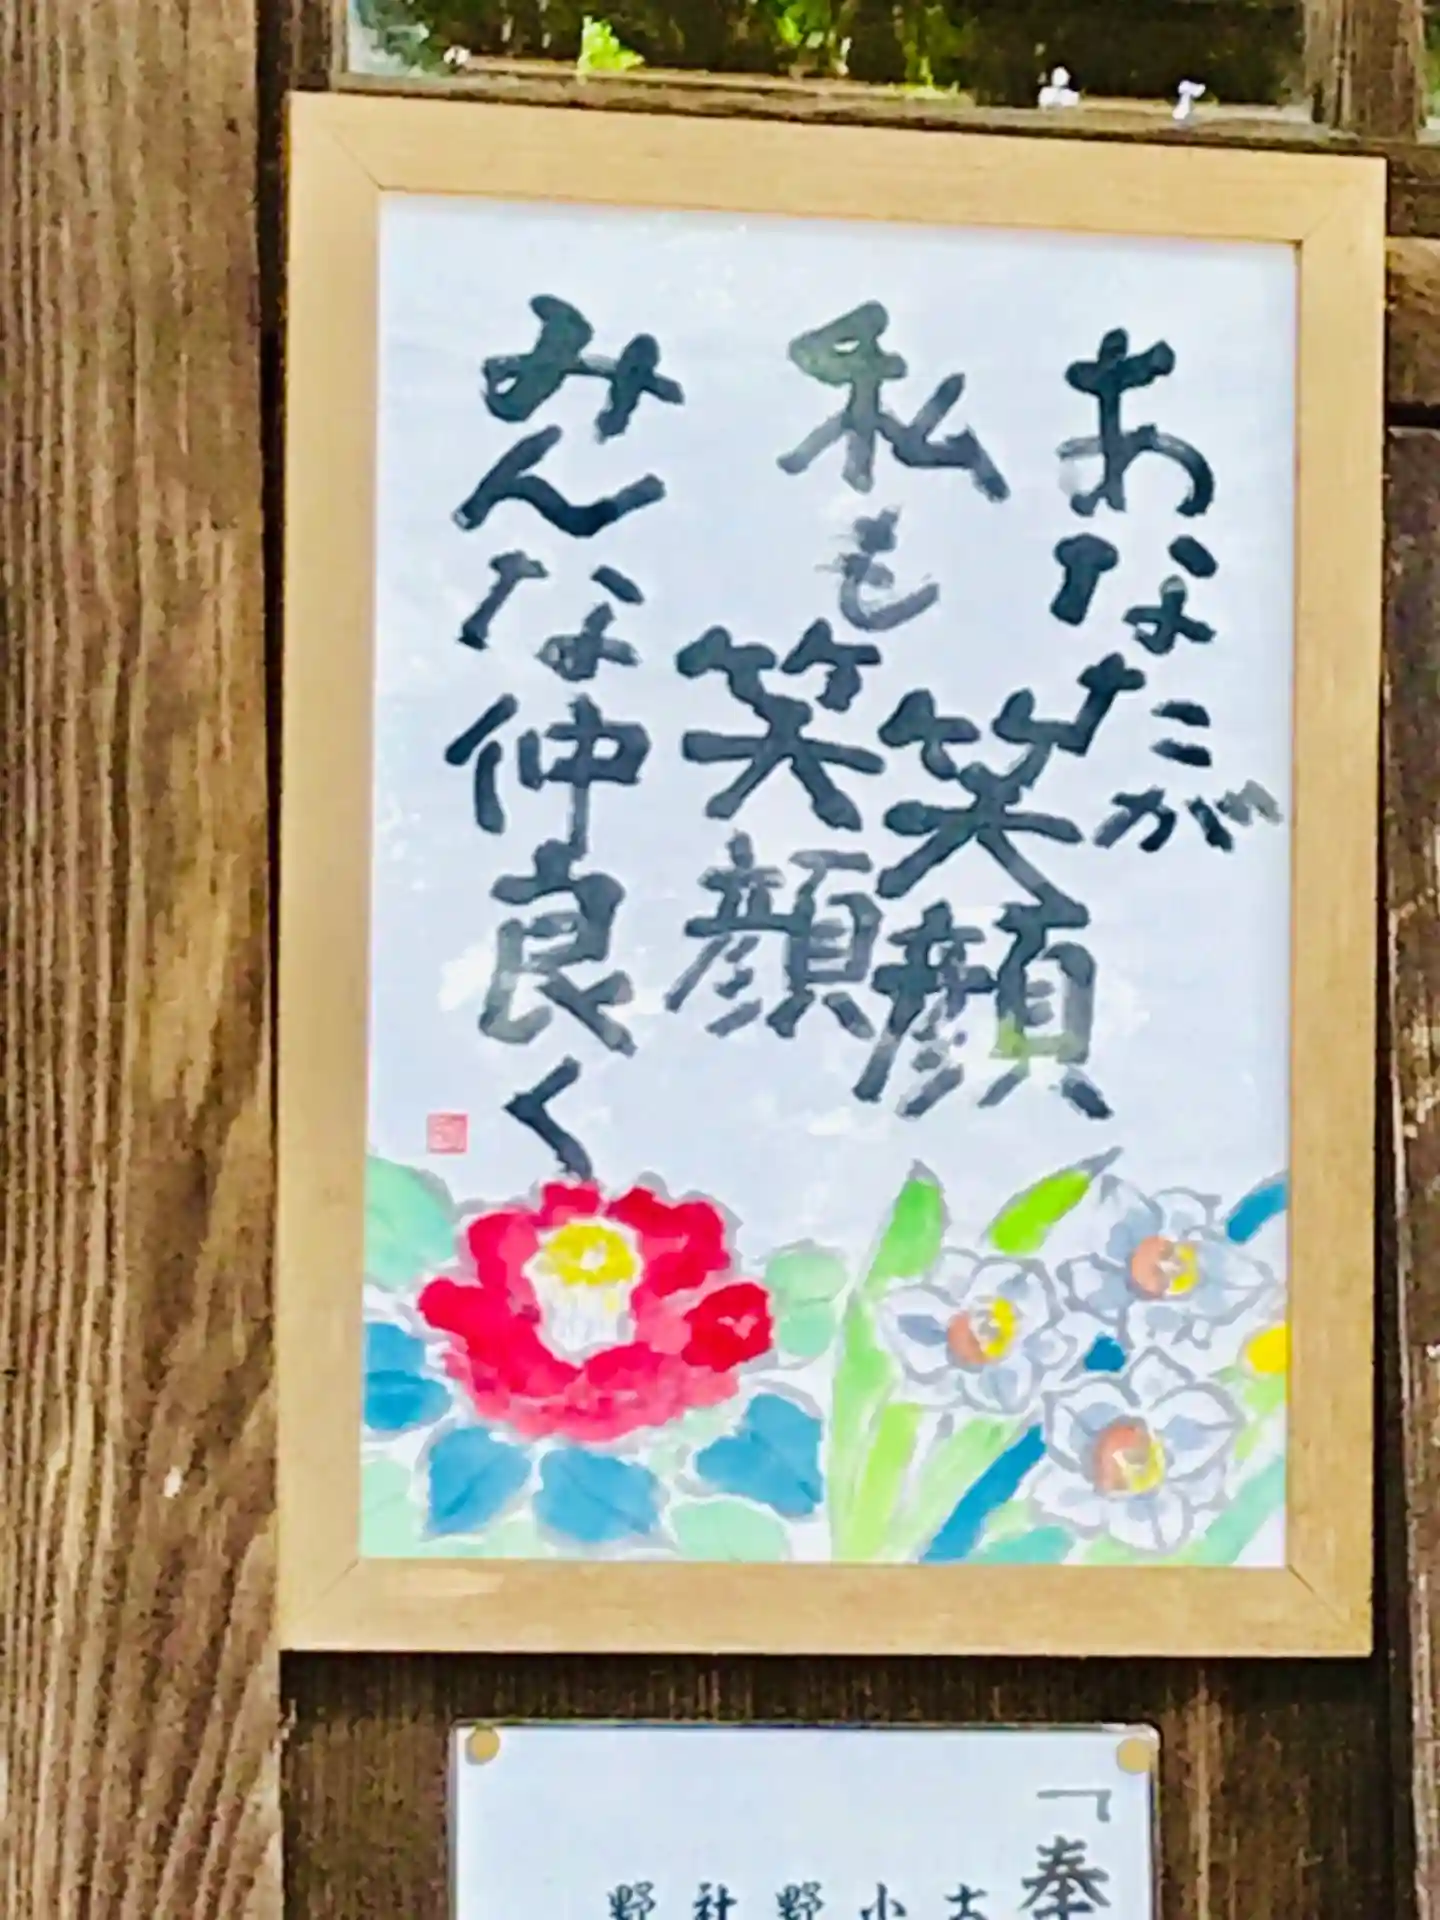 あなたが
笑顔
私も
笑顔
みんな仲良く
「奉
古
小
野
社
野